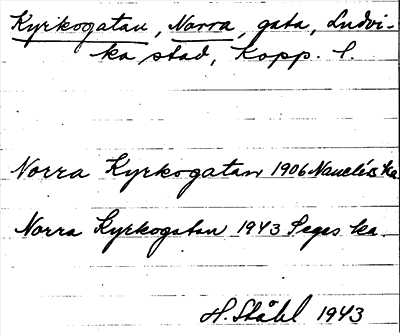 Kyrkogatan, Norra, gata, Ludvi-
ka stad, Kopp. l.
Norra Kyrkogatan 1906 Nauclérs ka
Norra Kyrkogatan 1943 Seges ka.
H. Ståhl 1943